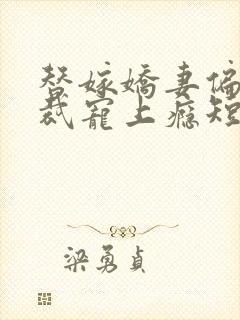 替嫁嬌妻偏
裁寵上癮短
梁勇貞